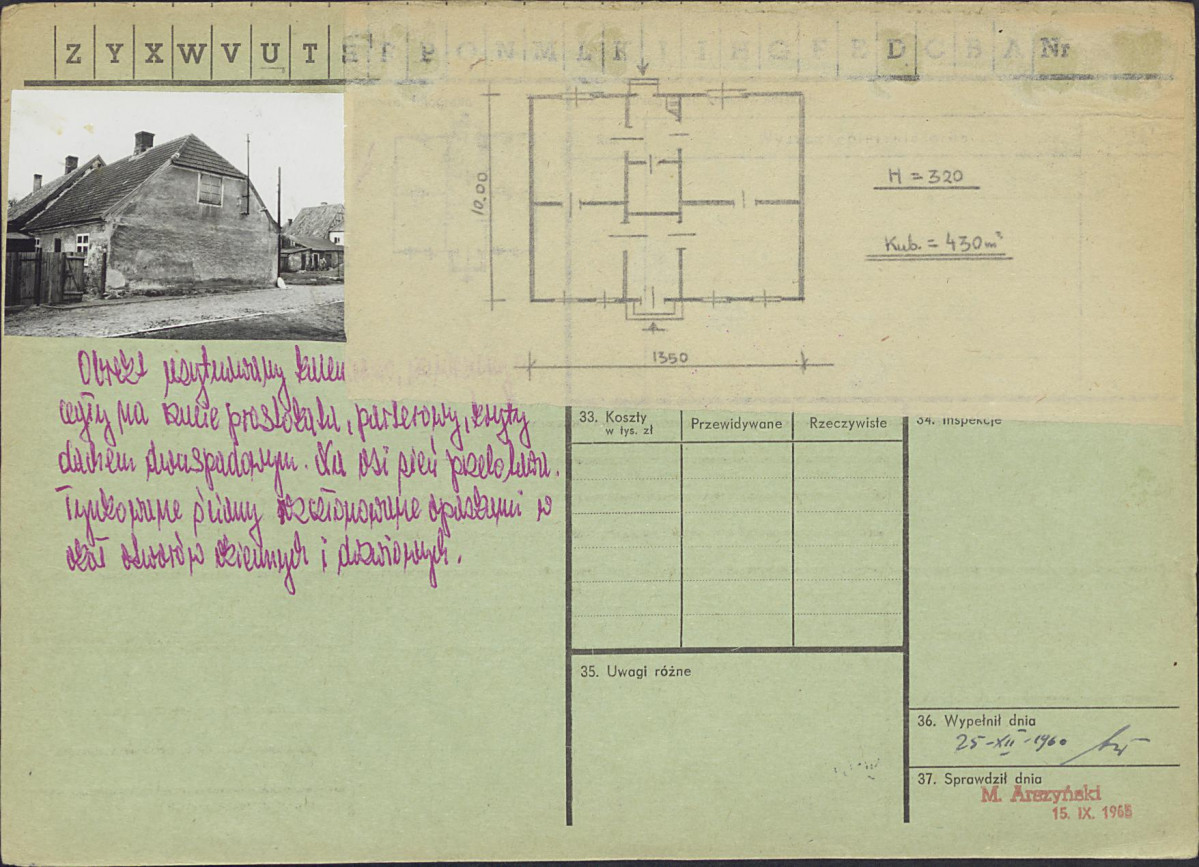 Z Y X W V U T S R P O N M L K I H G F E D C B A Nr
10.00
H = 320
Kub. = 430 m³
1350
Obiekt usytuowany
cegły na rzucie prostokąta, parterowy, kryty
dachem dwuspadowym. Na osi sień przelotowa.
Tynkowane ściany rozczłonowane opaskami w
okół otworów okiennych i drzwiowych.
33. Koszty
w tys. zł
Przewidywane
Rzeczywiste
34. Inspekcje
35. Uwagi różne
36. Wypełnił dnia
25-XII-1960
37. Sprawdził dnia
M. Arszyński
15. IX. 1965